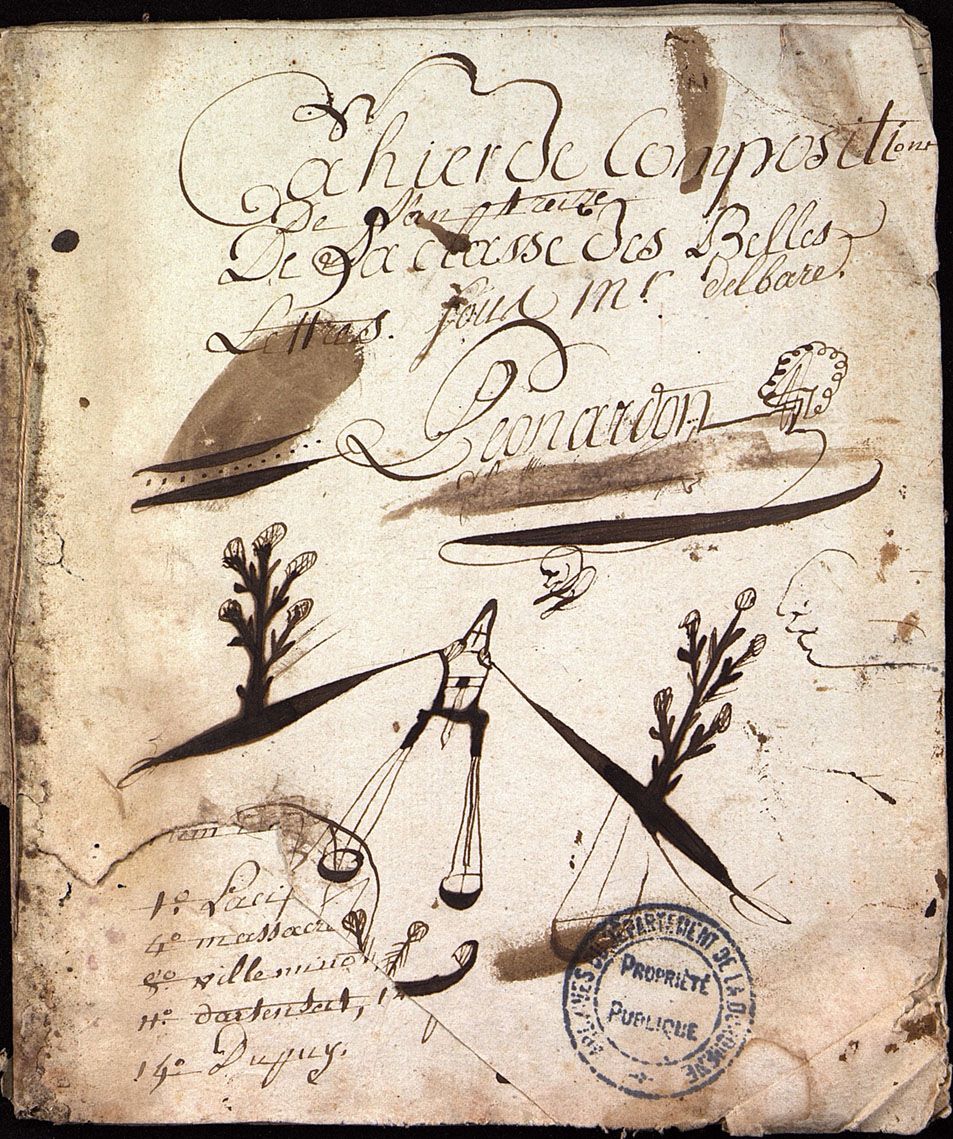 Cahier de Compositions
De l'an treize
De La classe des Belles
Lettres. sous Mr. delbare.
Leonardon
1o Laci
4o massacre
8o ville
11o dartensat, 12
14o Dupuy.
ARCHIVES DU DÉPARTEMENT DE LA DORDOGNE
PROPRIÉTÉ
PUBLIQUE